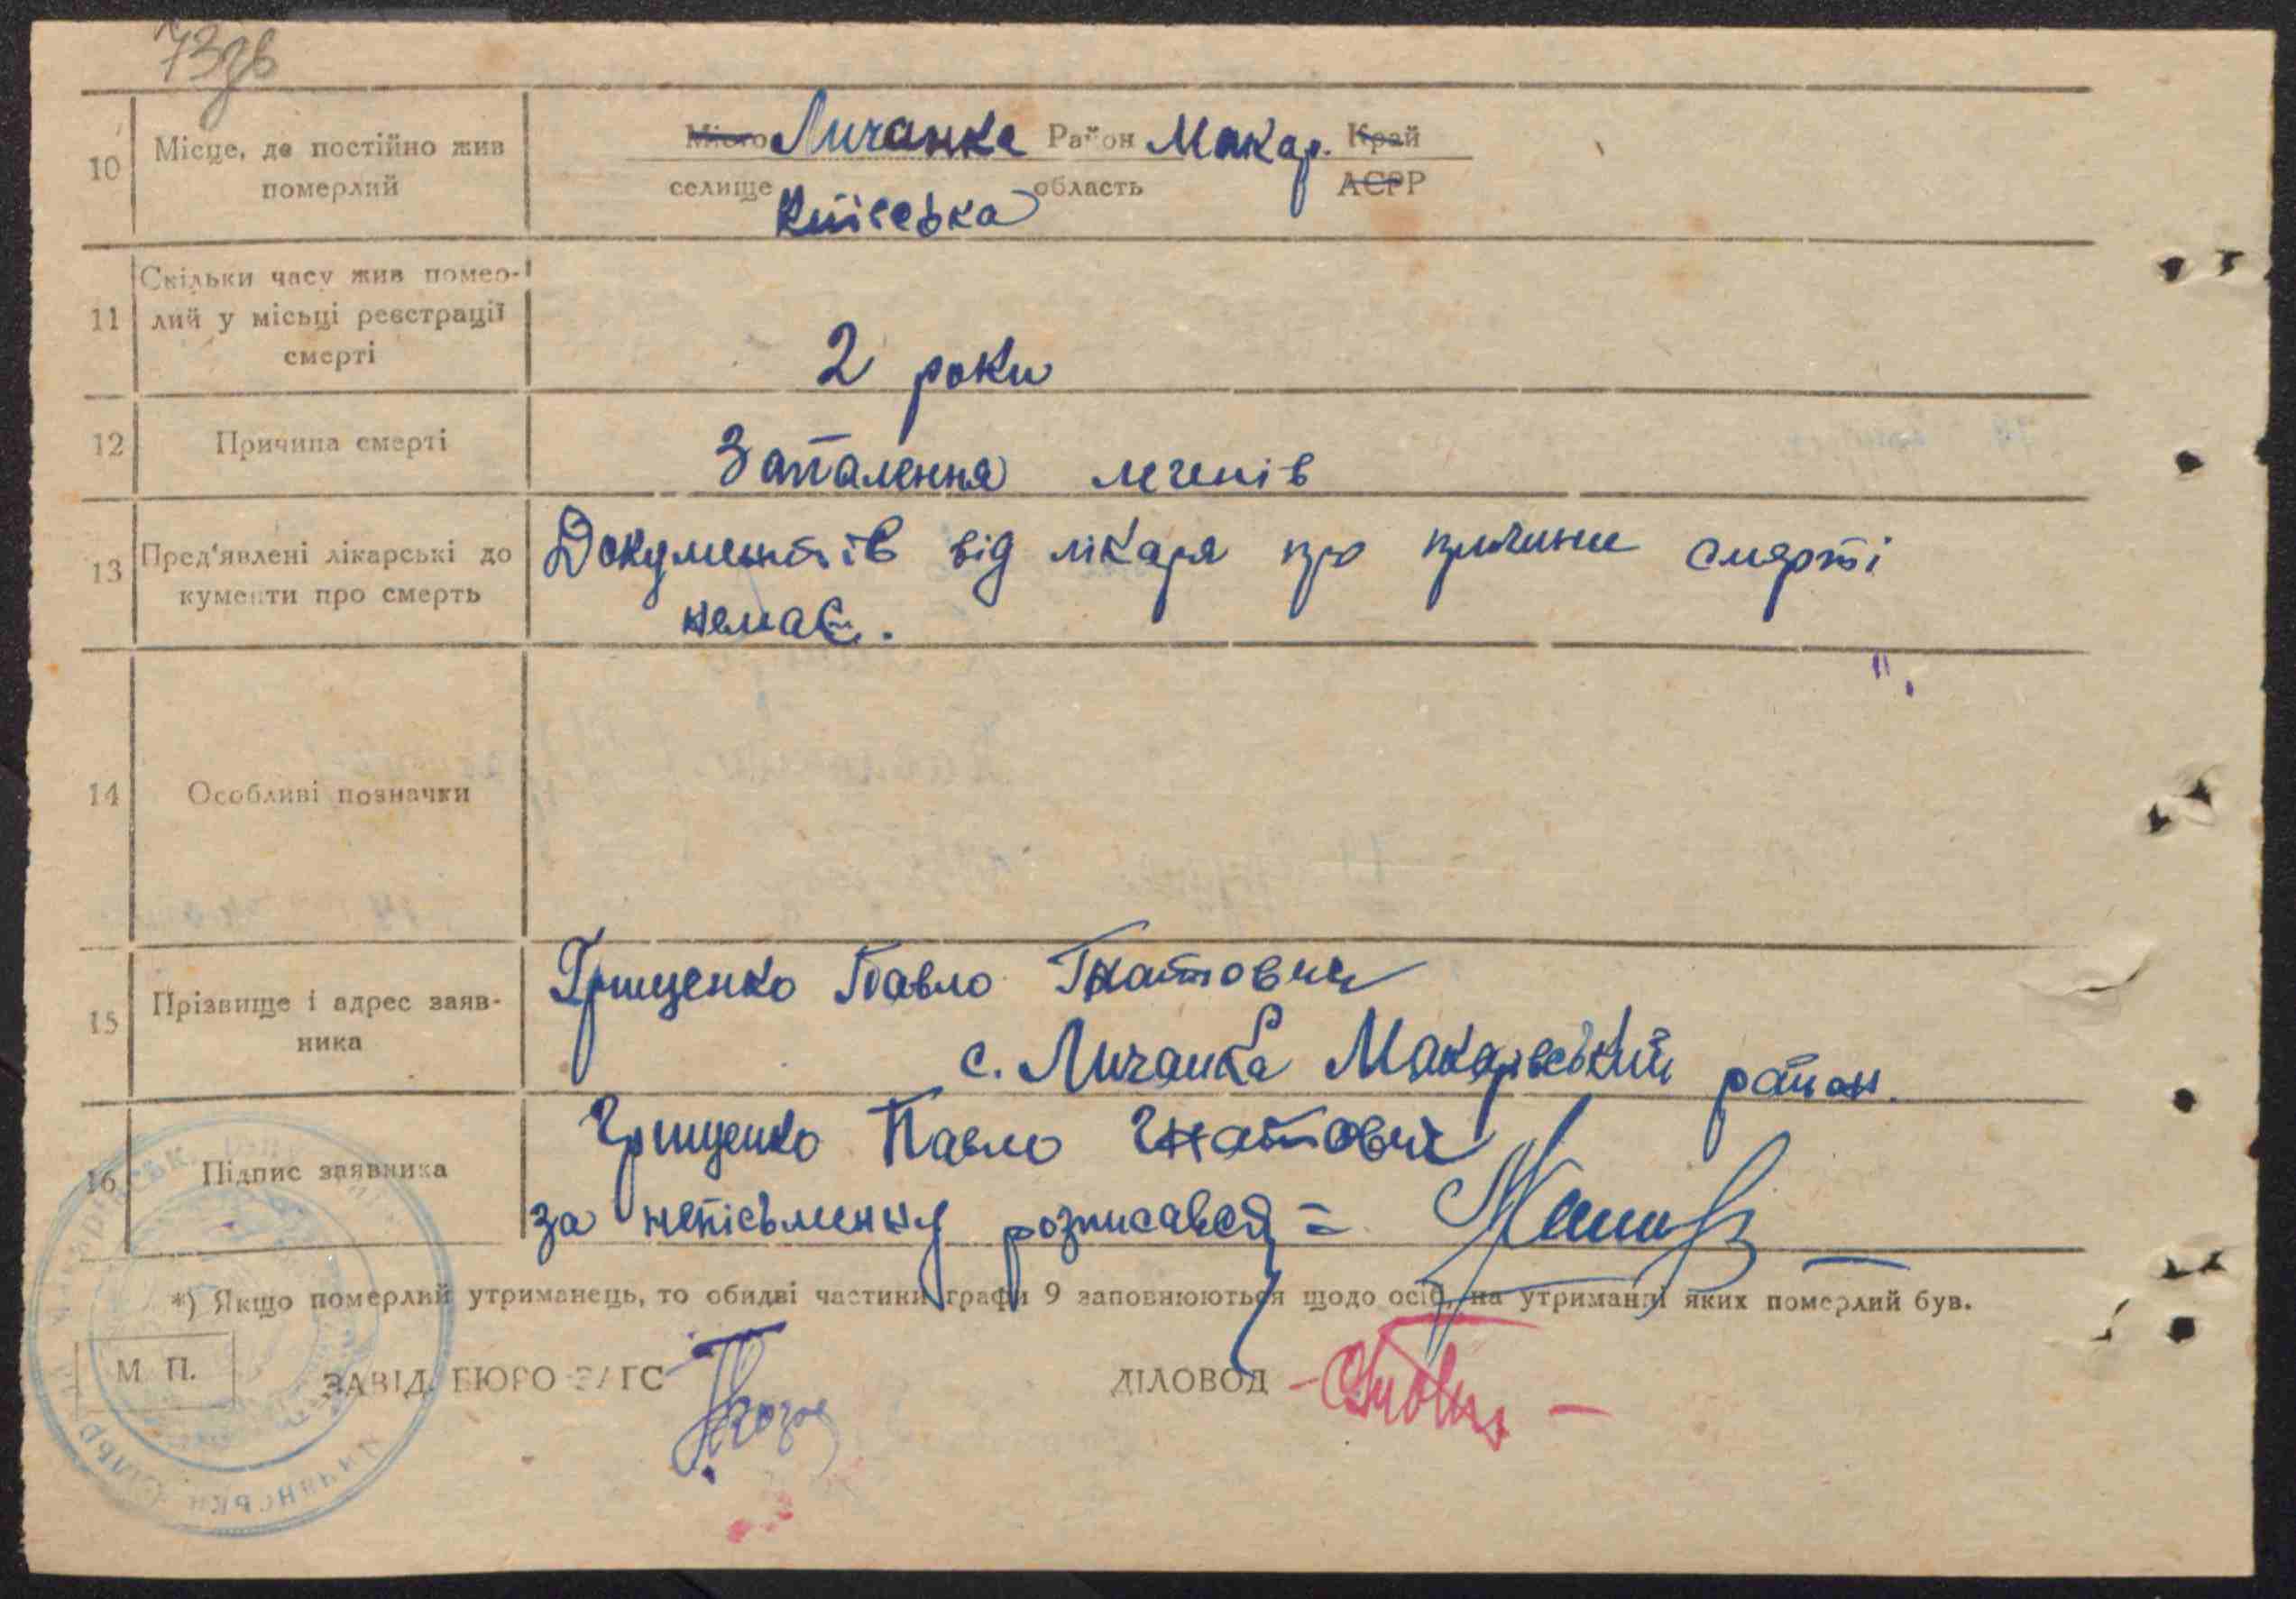 73зв
10 Місце, де постійно жив померлий
Місто Личанка Район Макар. Край
селище область АСРР
Київська
11 Скільки часу жив помер-
лий у місьці реєстрації
смерті
2 роки
12 Причина смерті
Запалення легенів
13 Пред'явлені лікарські до
кументи про смерть
Документів від лікаря про причини смерті
немає.
14 Особливі позначки
15 Прізвище і адрес заяв-
ника
Грищенко Павло Гнатович
с. Личанка Макарівський район.
16 Підпис заявника
Грищенко Павло Гнатович
за неписьменну розписався =
*) Якщо померлий утриманець, то обидві частини графи 9 заповнюються щодо осіб, на утриманні яких померлий був.
М П.
ЗАВІД. БЮРО ЗАГС
ДІЛОВОД